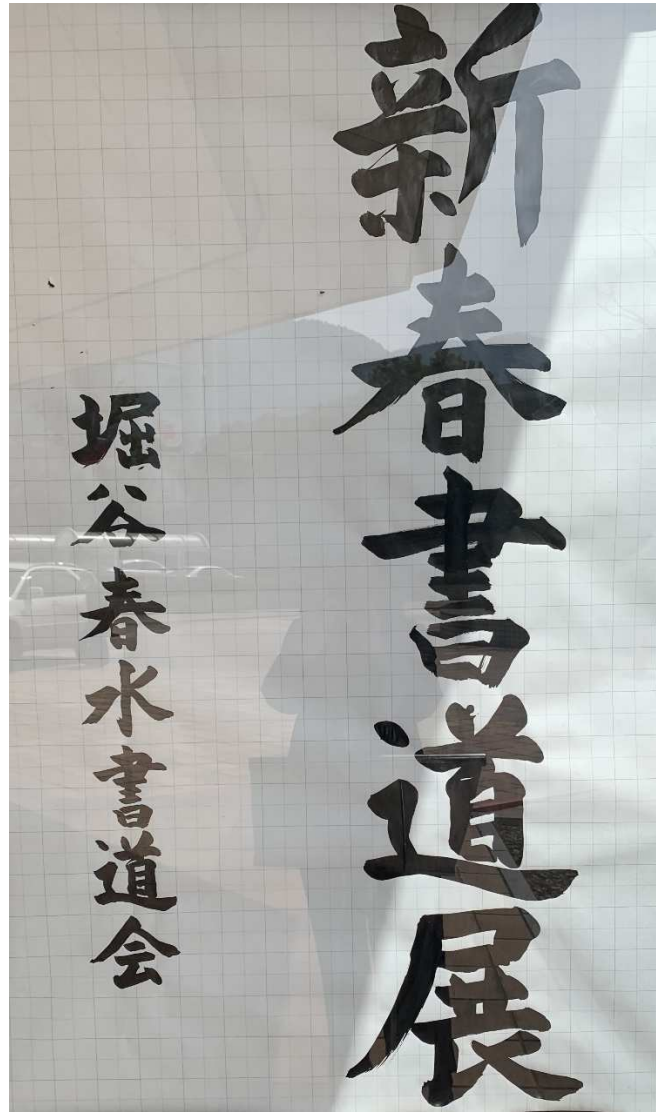 新春書道展
堀谷春水書道会